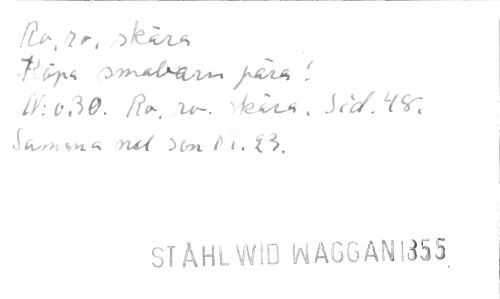 Ro, ro, skära
Köpa småbarn pära!
N:o 30. Ro, ro. skära. Sid. 48.
Samma mel som N. 23.
STÅHL WID WAGGAN 1855